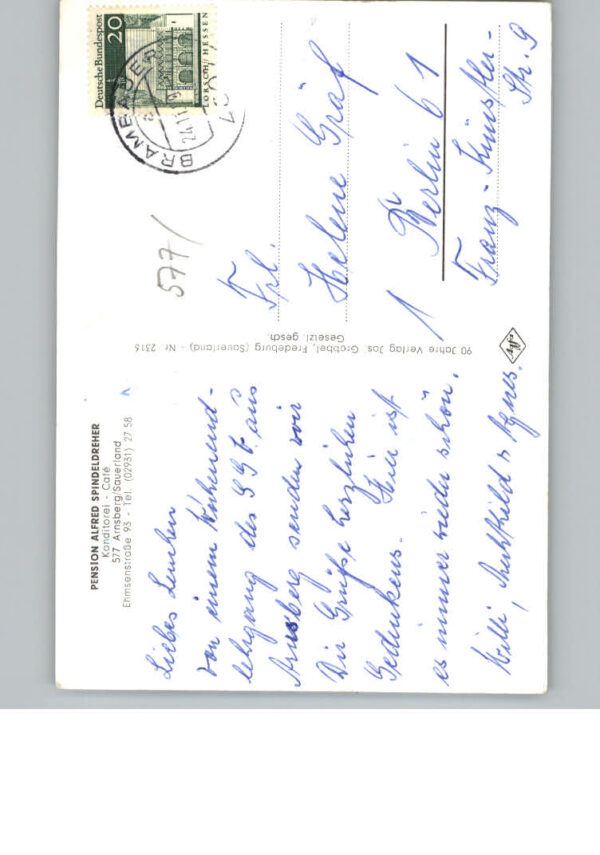 PENSION ALFRED SPINDELDREHER
Konditorei - Café
577 Arnsberg/Sauerland
Ehmsenstraße 93 - Tel. (02931) 27 58
Liebes Lenchen
von einem Wochenend-
lehrgang des aus
Arnsberg senden wir
Dir Grüße herzlichen
Gedenkens. Hier ist
es immer wieder schön.
Willi, Mechthild & Agnes.
90 Jahre Verlag Jos. Grobbel, Fredeburg (Sauerland) - Nr. 2315
Gesetzl. gesch.
Deutsche Bundespost
20
LORSCH/HESSEN
BRAMBAUER
24.11.
577/
Frl.
Helene Gräf
1 Berlin 61
Franz-Künstler-
Str. 9